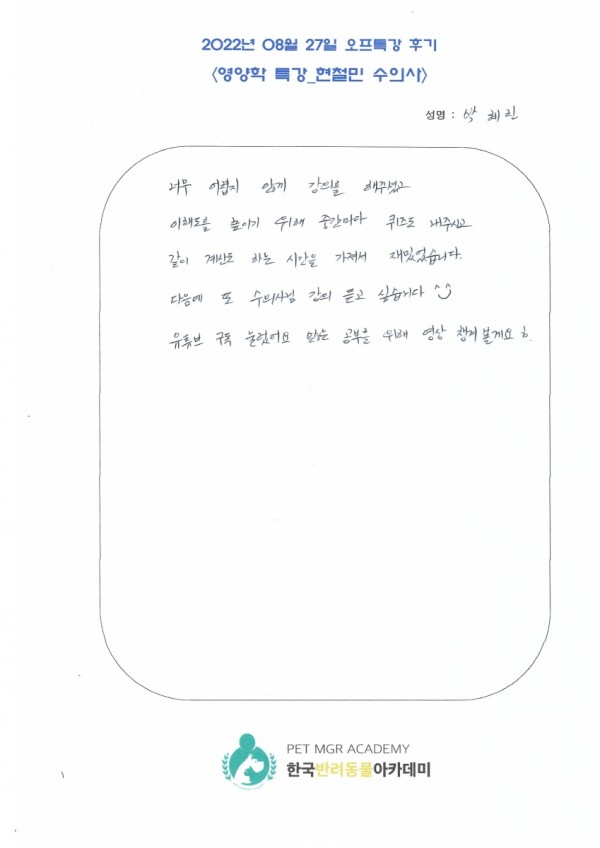 2022년 08월 27일 오프특강 후기
<영양학 특강_현철민 수의사>
성명 : 박혜린
너무 어렵지 않게 강의를 해주셨고
이해도를 높이기 위해 중간마다 퀴즈도 내주시고
같이 계산도 하는 시간을 가져서 재밌었습니다.
다음에 또 수의사님 강의 듣고 싶습니다 ^^
유튜브 구독 눌렀어요 많은 공부를 위해 영상 챙겨볼게요
PET MGR ACADEMY
한국반려동물아카데미